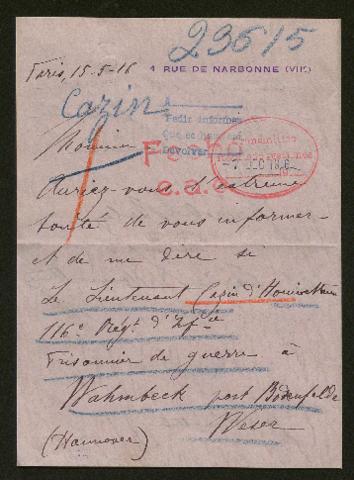 23615
Paris, 15-5-16
4 RUE DE NARBONNE (VIIe)
Cazin
A
Pedir informes
Devolver
Monsieur
Auriez-vous l'extrême
bonté de vous informer
et de me dire si
Le Lieutenant Cazin d'Honincthun
116e Régt d'Infie
Prisonnier de guerre à
Wahmbeck post Bodenfelde
Weser
(Hannover)